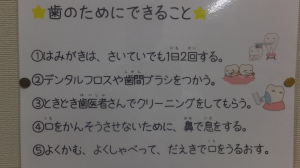 歯のためにできること
①はみがきは、さいていでも1日2回する。
②デンタルフロスや歯間ブラシをつかう。
③ときどき歯医者さんでクリーニングをしてもらう。
④口をかんそうさせないために、鼻で息をする。
⑤よくかむ、よくしゃべって、だえきで口をうるおす。